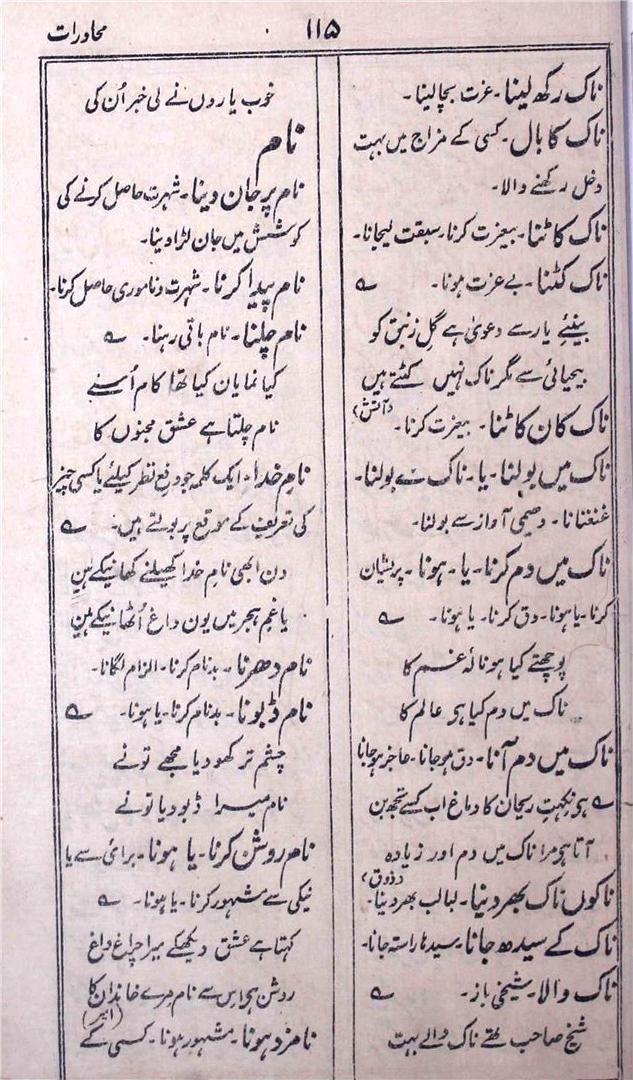 محاورات
۱۱۵
ناک رکھ لینا۔ عزت بچا لینا۔
ناک کا بال۔ کسی کے مزاج میں بہت
دخل رکھنے والا۔
ناک کاٹنا۔ بیعزت کرنا۔ سبقت لیجانا۔
ناک کٹنا۔ بے عزت ہونا۔ ؎
بینئے یار سے دعویٰ ہے گل زنبق کو
بیحیائی سے مگر ناک نہیں کٹتے ہیں
(آتش)
ناک کان کاٹنا۔ بیعزت کرنا۔
ناک میں بولنا۔ یا۔ ناک سے بولنا۔
غنغنانا۔ دھیمی آواز سے بولنا۔
ناک میں دم کرنا۔ یا۔ ہونا۔ پریشان
کرنا۔ یا ہونا۔ دق کرنا۔ یا ہونا۔ ؎
پوچھتے کیا ہو نالۂ غم کا
ناک میں دم کیا ہی عالم کا
ناک میں دم آنا۔ دق ہو جانا۔ عاجز ہو جانا
؎ ہی نکہت ریحان کا داغ اب کسے تجھ بن
آتا ہی مرا ناک میں دم اور زیادہ
(ذوق)
ناکوں ناک بھر دینا۔ لبالب بھر دینا۔
ناک کے سیدھ جانا۔ سیدھا راستہ جانا۔
ناک والا۔ شیخی باز۔ ؎
شیخ صاحب تھے ناک والے بہت
خوب یاروں نے لی خبر اُن کی
نام
نام پر جان دینا۔ شہرت حاصل کرنے کی
کوشش میں جان لڑا دینا۔
نام پیدا کرنا۔ شہرت و ناموری حاصل کرنا۔
نام چلنا۔ نام باقی رہنا۔ ؎
کیا نمایان کیا تھا کام اُسنے
نام چلتا ہے عشق مجنوں کا
نام خدا۔ ایک کلمہ جو دفع نظر کیلئے یا کسی چیز
کی تعریف کے موقع پر بولتے ہیں۔ ؎
دن ابھی نام خدا کھیلنے کھانیکے ہین
یا غم ہجر میں یون داغ اُٹھانیکے ہین
نام دھرنا۔ بدنام کرنا۔ الزام لگانا۔
نام ڈبونا۔ بدنام کرنا۔ یا ہونا۔ ؎
چشم تر کھو دیا مجھے تونے
نام میرا ڈبو دیا تونے
نام روشن کرنا۔ یا ہونا۔ برائی سے یا
نیکی سے مشہور کرنا۔ یا ہونا۔ ؎
کہتا ہے عشق دیکھکے میرا چراغ داغ
روشن ہی اس سے نام مرے خاندان کا
(امیر)
نامزد ہونا۔ مشہور ہونا۔ کسی کے